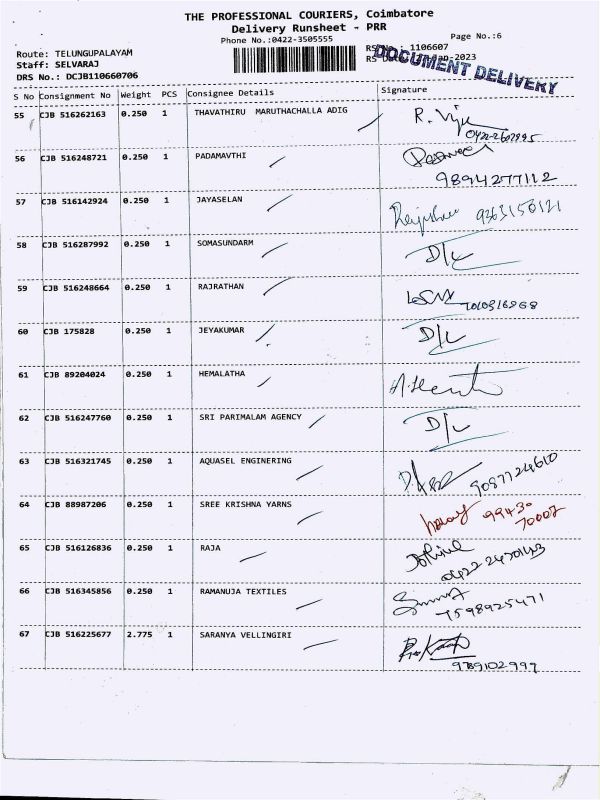 THE PROFESSIONAL COURIERS, Coimbatore
Delivery Runsheet - PRR
Phone No.:0422-3505555
Page No.:6
Route: TELUNGUPALAYAM
RS No.: 1106607
Staff: SELVARAJ
-2023
DOCUMENT DELIVERY
DRS No.: DCJB110660706
S No Consignment No Weight PCS Consignee Details Signature
55 CJB 516262163 0.250 1 THAVATHIRU MARUTHACHALLA ADIG
R. Viju
56 CJB 516248721 0.250 1 PADAMAVTHI
9894277112
57 CJB 516142924 0.250 1 JAYASELAN
9363150121
58 CJB 516287992 0.250 1 SOMASUNDARM D/L
59 CJB 516248664 0.250 1 RAJRATHAN
60 CJB 175828 0.250 1 JEYAKUMAR D/L
61 CJB 89204024 0.250 1 HEMALATHA
62 CJB 516247760 0.250 1 SRI PARIMALAM AGENCY D/L
63 CJB 516321745 0.250 1 AQUASEL ENGINERING
9087724610
64 CJB 88987206 0.250 1 SREE KRISHNA YARNS
99430
70007
65 CJB 516126836 0.250 1 RAJA
66 CJB 516345856 0.250 1 RAMANUJA TEXTILES
7598925471
67 CJB 516225677 2.775 1 SARANYA VELLINGIRI
9789102997